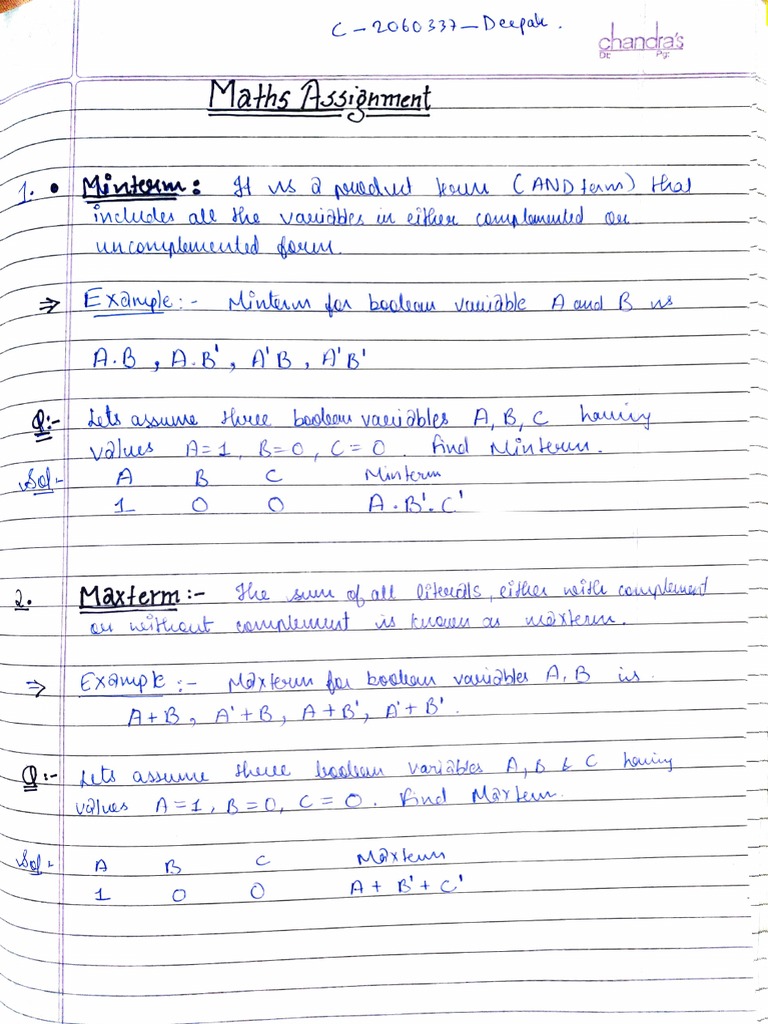 C-2060337-Deepak.
chandra's
Dt
Pg:
Maths Assignment
1. • Minterm: It is a product term (AND term) that
includes all the variables in either complemented or
uncomplemented form.
⇒ Example:- Minterm for boolean variable A and B is
A.B, A.B', A'B, A'B'
Q:- Lets assume three boolean variables A, B, C having
values A=1, B=0, C=0. Find Minterm.
Sol- A B C Minterm
1 0 0 A.B'.C'
2. Maxterm:- The sum of all literals, either with complement
or without complement is known as maxterm.
⇒ Example:- Maxterm for boolean variables A, B is.
A+B, A'+B, A+B', A'+B'.
Q:- Lets assume three boolean variables A, B & C having
values A=1, B=0, C=0. Find Maxterm.
Sol- A B C Maxterm
1 0 0 A+B'+C'